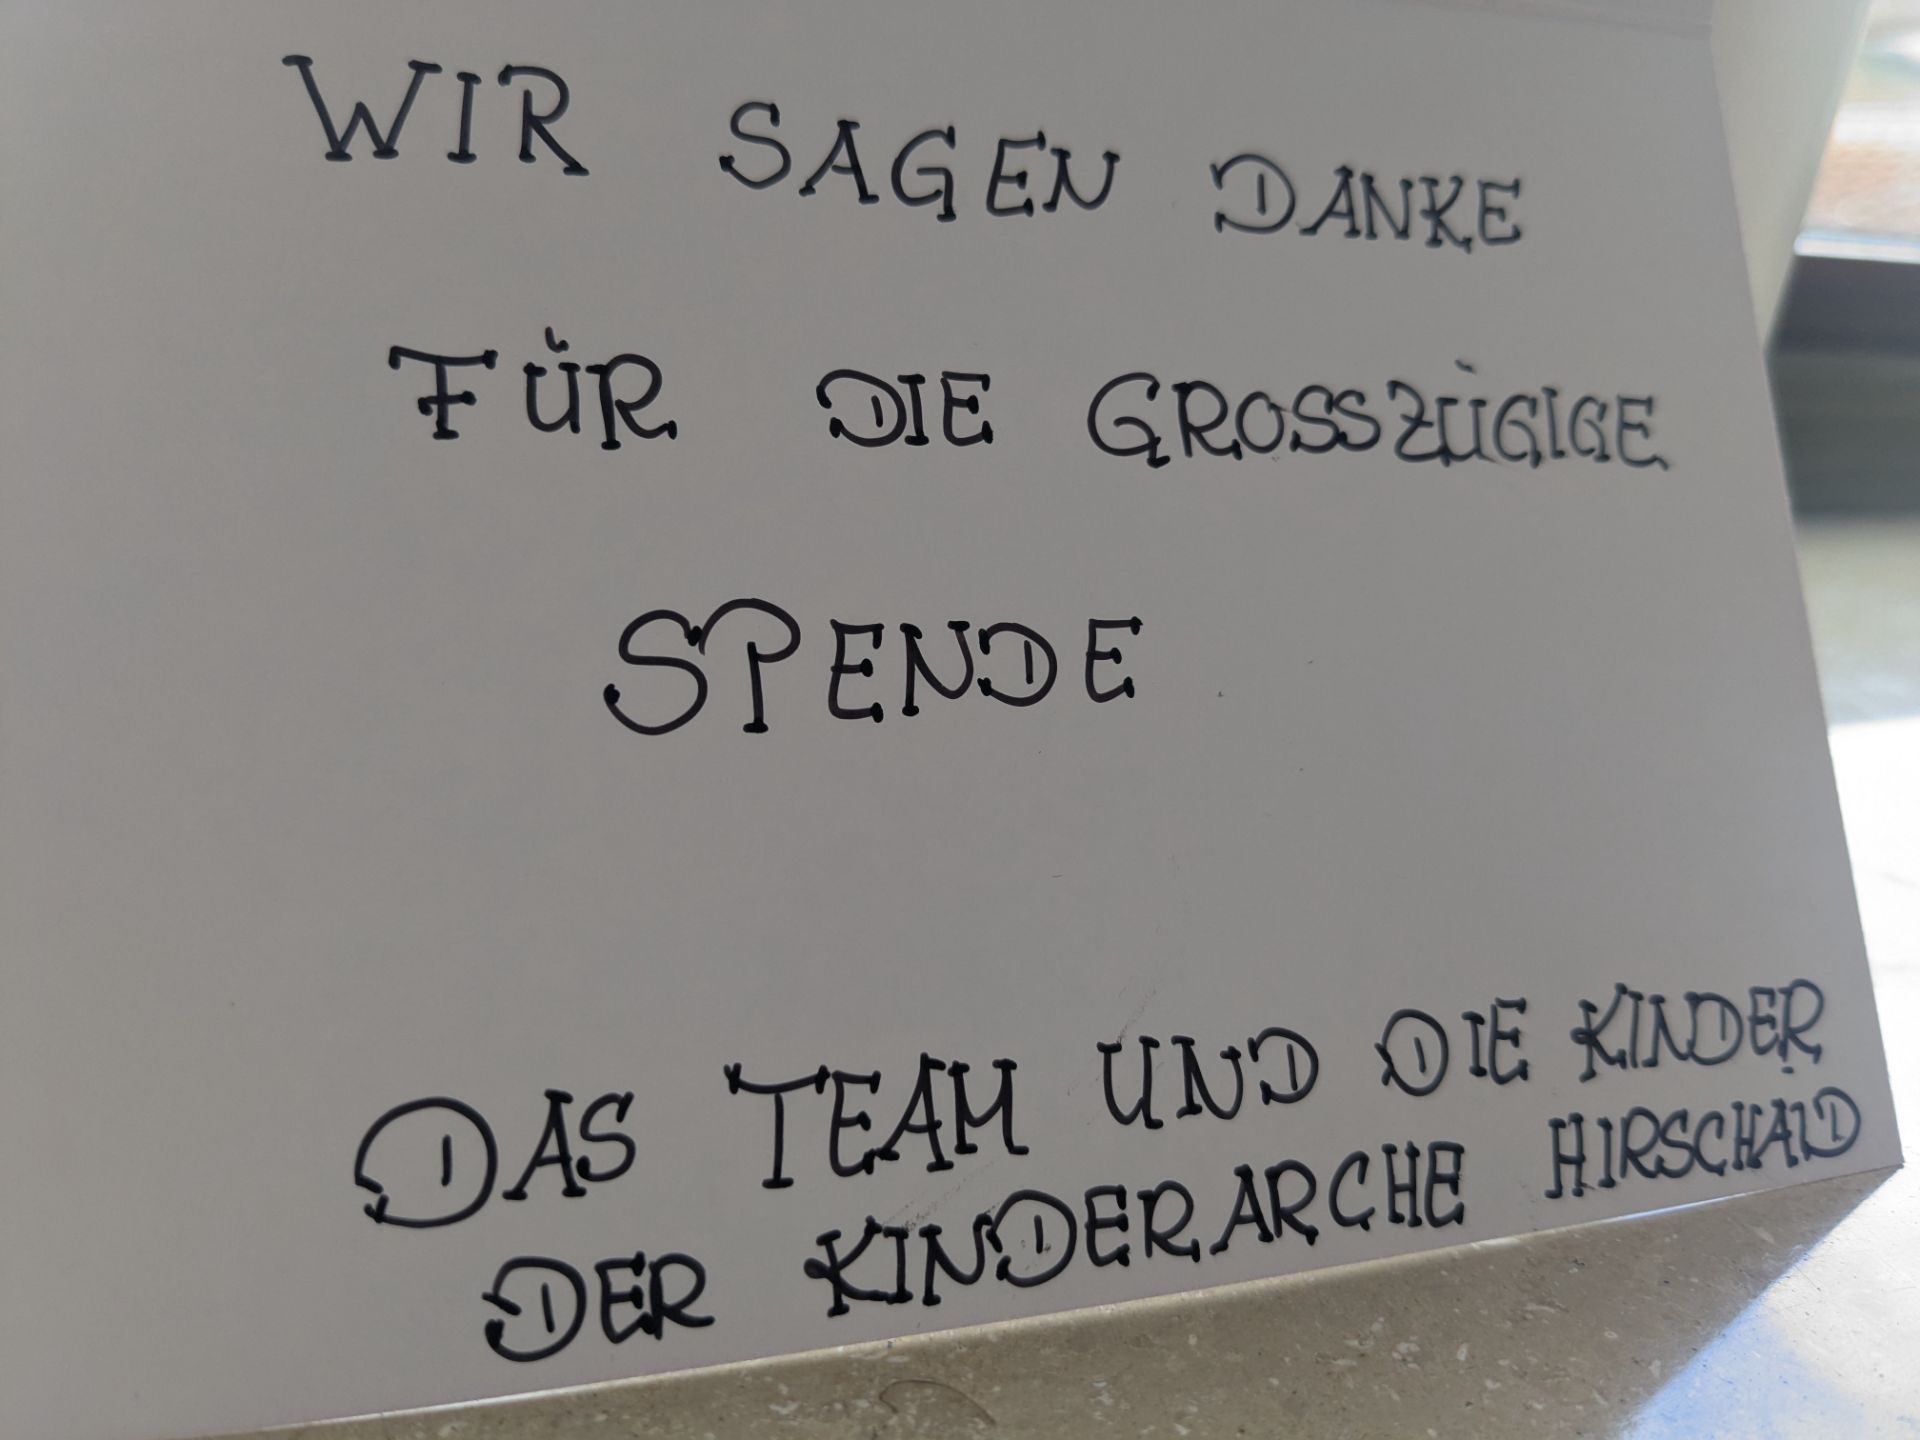 WIR SAGEN DANKE
FÜR DIE GROSSZÜGIGE
SPENDE
DAS TEAM UND DIE KINDER
DER KINDERARCHE HIRSCHAID